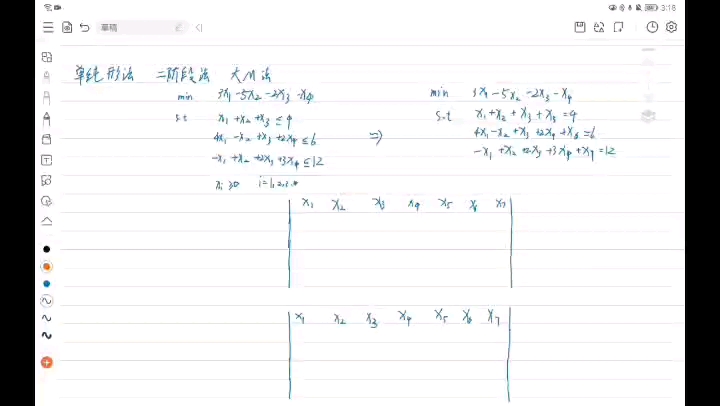 3:16
草稿
单纯形法 二阶段法 大M法
min 3x₁-5x₂-2x₃-x₄
s.t x₁+x₂+x₃≤4
4x₁-x₂+x₃+2x₄≤6
-x₁+x₂+2x₃+3x₄≤12
xᵢ≥0 i=1,2,3,4
⇒
min 3x₁-5x₂-2x₃-x₄
s.t x₁+x₂+x₃+x₅=4
4x₁-x₂+x₃+2x₄+x₆=6
-x₁+x₂+2x₃+3x₄+x₇=12
x₁ x₂ x₃ x₄ x₅ x₆ x₇
x₁ x₂ x₃ x₄ x₅ x₆ x₇